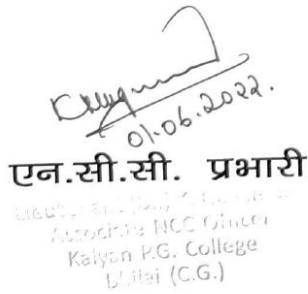 01.06.2022.
एन.सी.सी. प्रभारी
Associate NCC Officer
Kalyan P.G. College
Bhilai (C.G.)